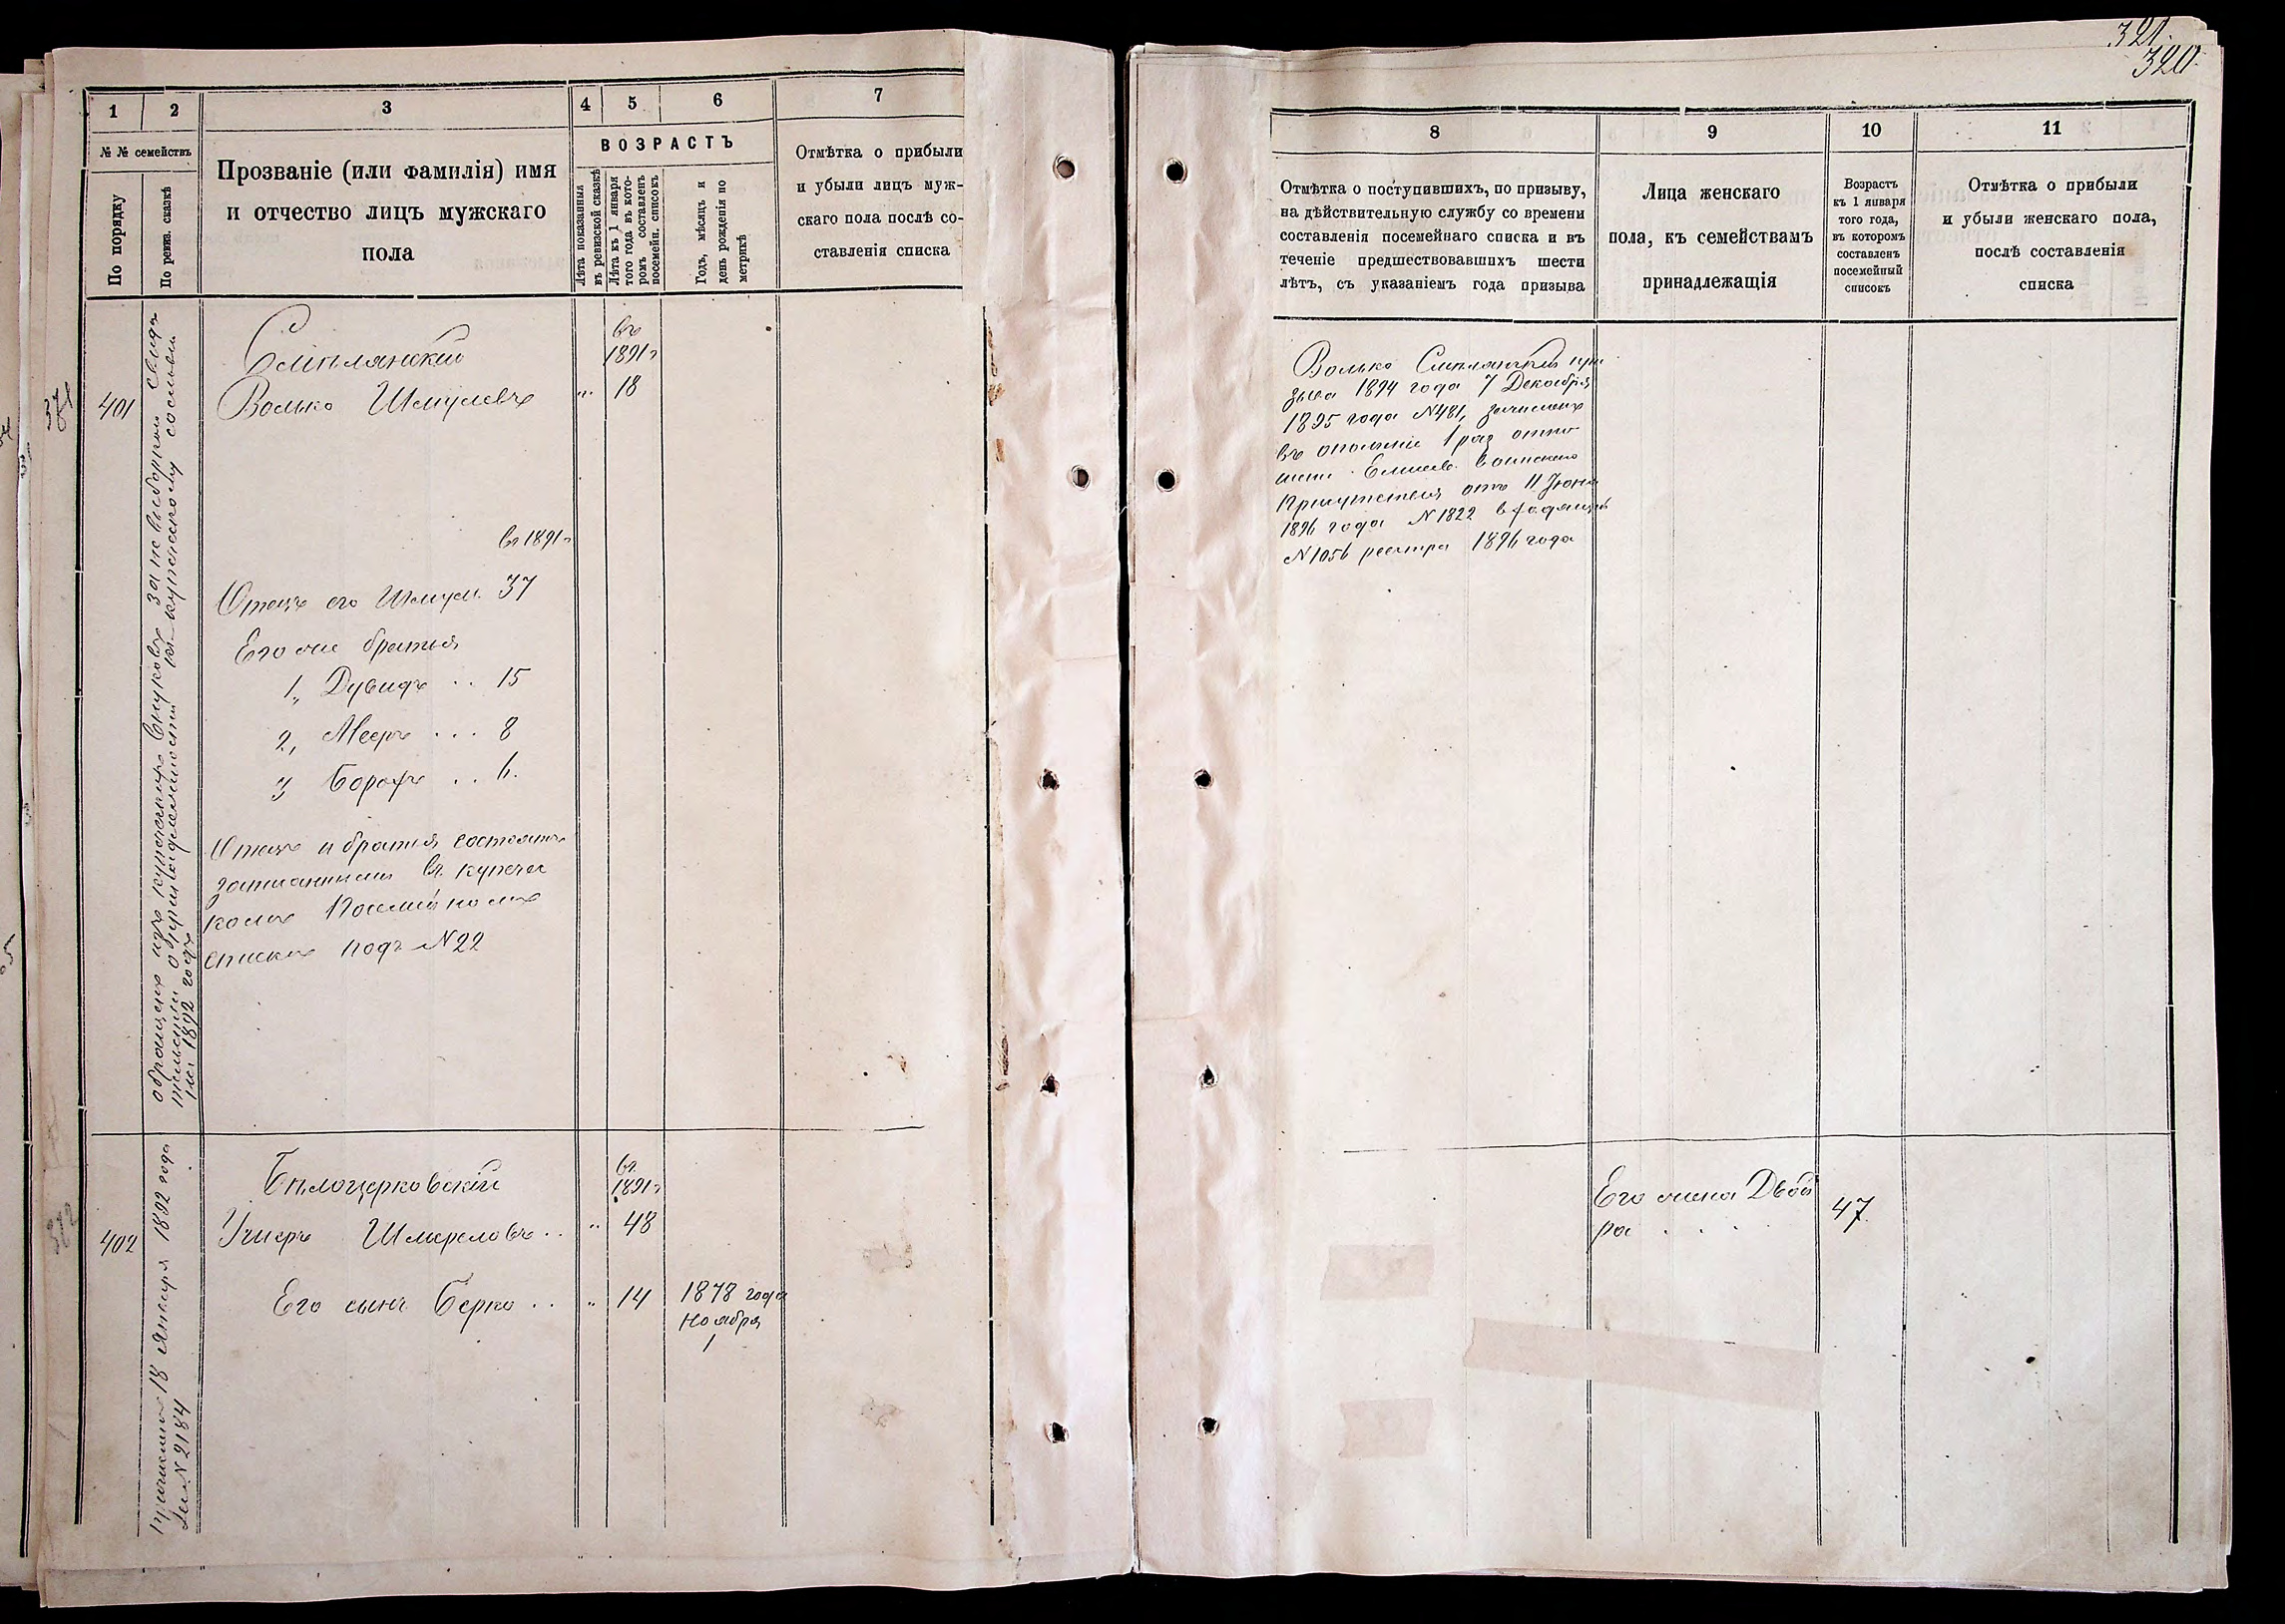 321.
320.
1
2
3
4
5
6
7
№ № семействъ
По порядку
По ревиз. сказкѣ
Прозваніе (или фамилія) имя
и отчество лицъ мужскаго
пола
ВОЗРАСТЪ
Лѣта показанныя
въ ревизской сказкѣ
Лѣта къ 1 января
того года въ кото-
ромъ составленъ
посемейн. списокъ
Годъ, мѣсяцъ и
день рожденія по
метрикѣ
Отмѣтка о прибыли
и убыли лицъ муж-
скаго пола послѣ со-
ставленія списка
371
401
обращенъ изъ купеческихъ внуковъ за невыборкою свидѣ
тельствъ о принадлежности къ купеческому сословію
на 1892 годъ
Сміплянскій
Волько Шмулевъ
въ
1891г
18
въ 1891г
Отецъ его Шмуль 37
Его же братья
1, Дувидъ .. 15
2, Мееръ ... 8
3 Борохъ .. 6.
Отецъ и братья состоятъ
записанными въ купечес
комъ посемейномъ
списке подъ №22
372
402
причисленъ 18 января 1892 года
№2184
Бѣлоцерковскій
Ушеръ Шмереловъ ..
въ
1891г
48
Его сынъ Берко ..
14
1878 года
ноября
1
8
9
10
11
Отмѣтка о поступившихъ, по призыву,
на дѣйствительную службу со времени
составленія посемейнаго списка и въ
теченіе предшествовавшихъ шести
лѣтъ, съ указаніемъ года призыва
Лица женскаго
пола, къ семействамъ
принадлежащія
Возрастъ
къ 1 января
того года,
въ которомъ
составленъ
посемейный
списокъ
Отмѣтка о прибыли
и убыли женскаго пола,
послѣ составленія
списка
Волько Смиплянскій при
зыва 1894 года 7 Декабря
1895 года №481, зачисленъ
въ ополченіе 1 раз отно
шеніе Елисав. воинскаго
Присутствія отъ 11 Іюня
1896 года №1822 входящій
№1056 реестра 1896 года
Его жена Двой
ра . . . .
47.